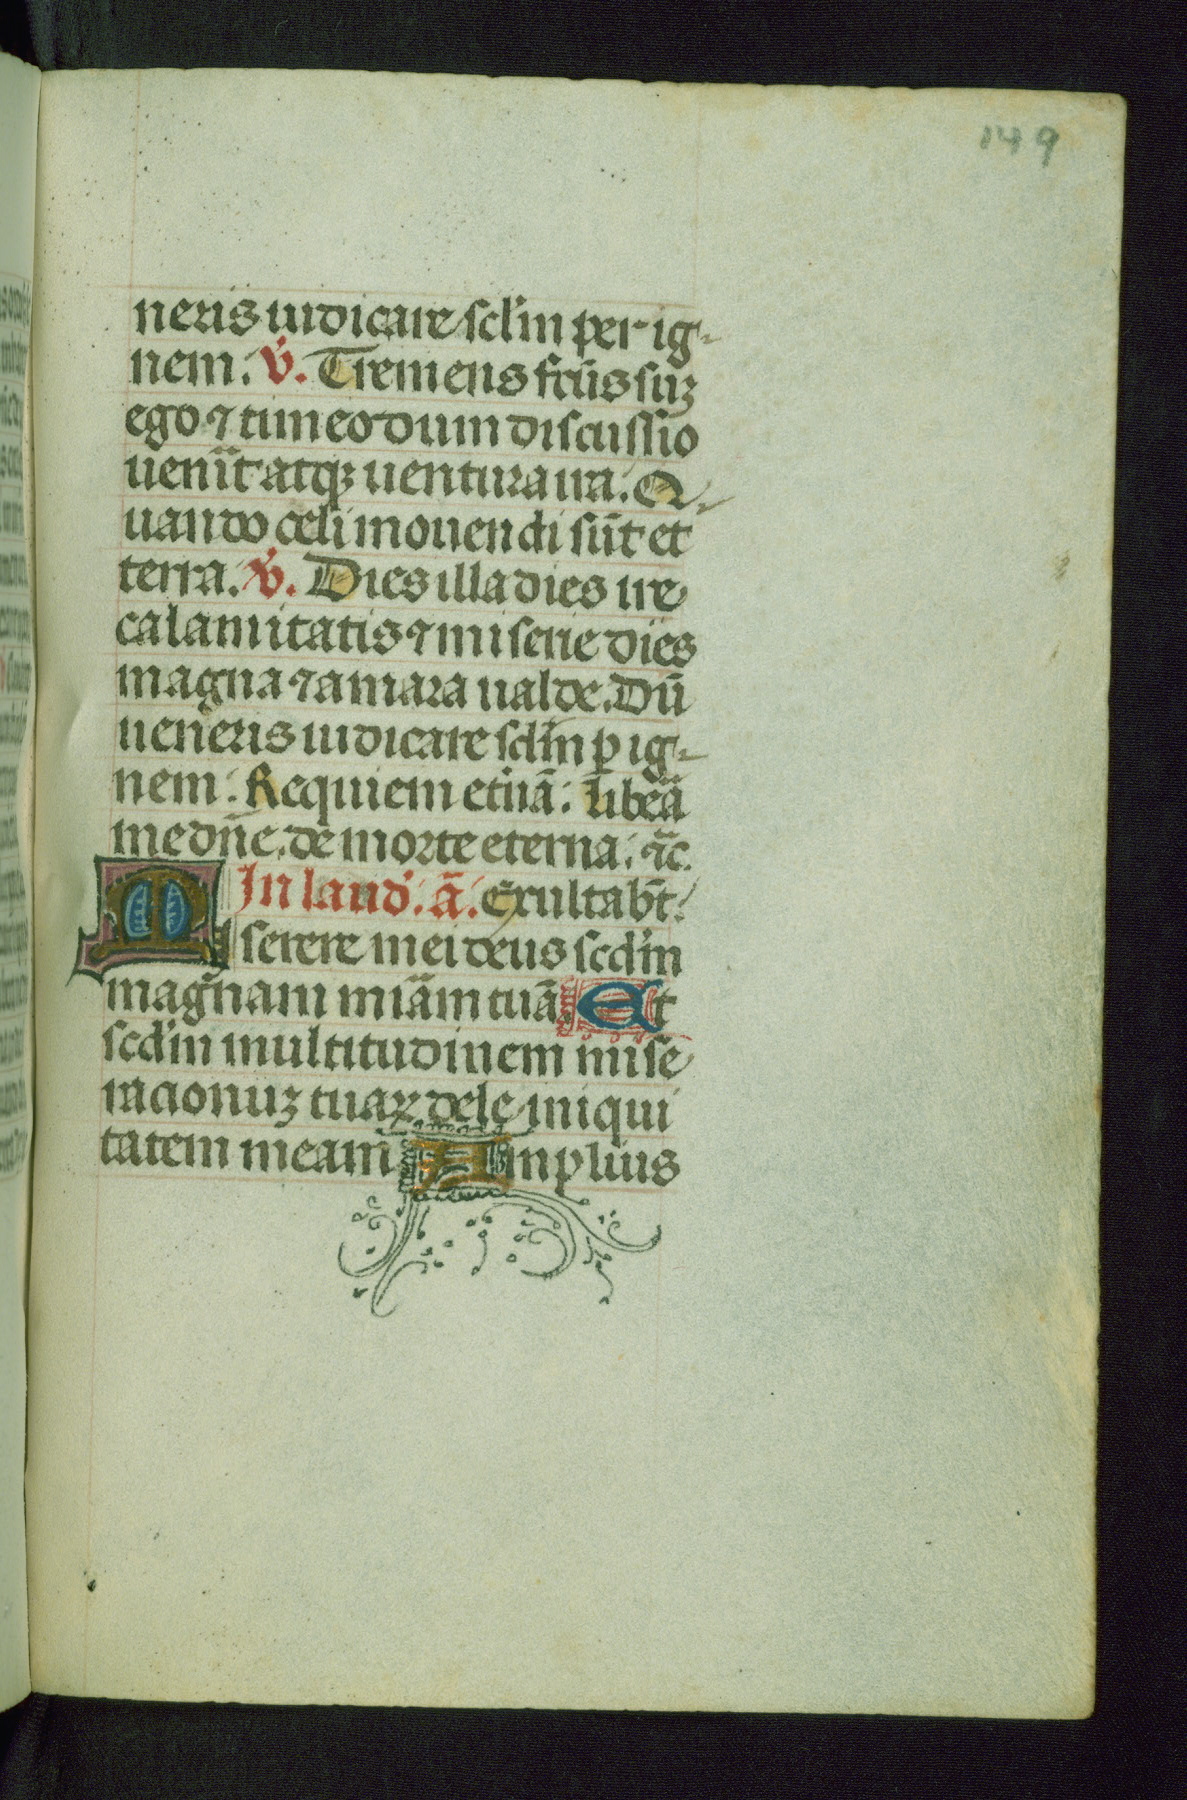 149
neris iudicare sclm per ig-
nem. v̄. Tremens fc̄us suʒ
ego ⁊ timeo dum discussio
uenīt atqʒ uentura ira. Q-
uando celi mouendi sūt et
terra. v̄. Dies illa dies ire
calamitatis ⁊ miserie dies
magna ⁊ amara ualde. Dū
ueneris iudicare sclm̄ ꝑ ig-
nem. Requiem et̾nā. Libea̾
me dn̄e. de morte eterna. ⁊c̄.
In laud̾. ā. Exultabt̄.
Miserere mei deus scdm̄
magnam miām tuā. Et
scdm̄ multitudinem mise
racionuʒ tuaꝝ dele iniqui
tatem meam Amplius